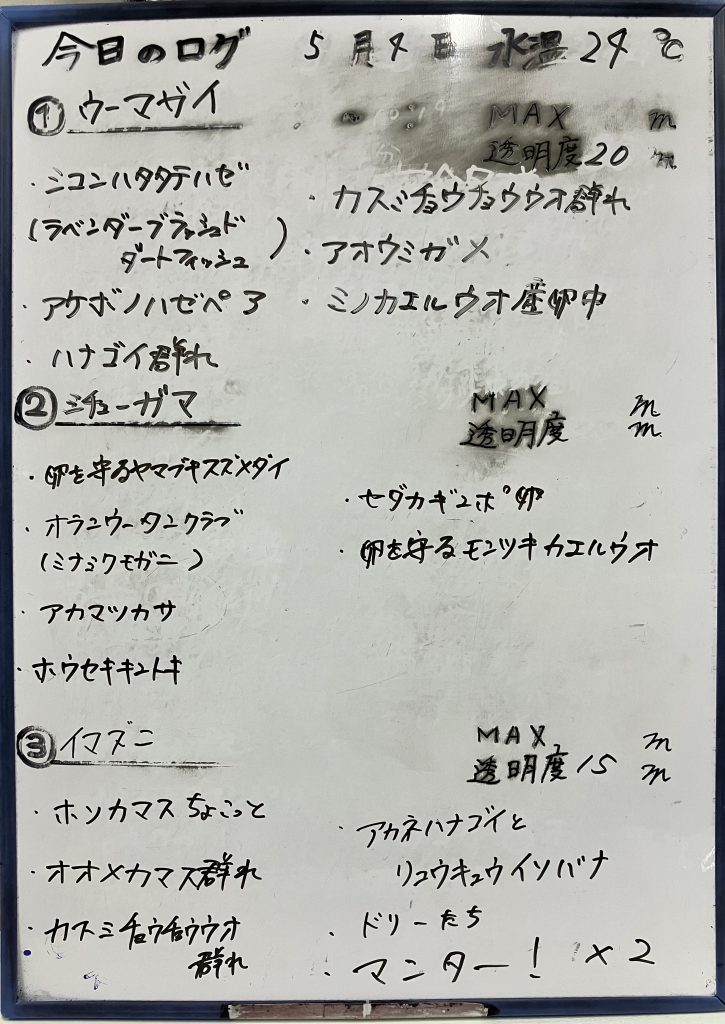 今日のログ 5月4日 水温24℃
① ウーマガイ
MAX m
透明度20m
・シコンハタタテハゼ
(ラベンダーブラッシュド
ダートフィッシュ)
・アケボノハゼペア
・ハナゴイ群れ
・カスミチョウチョウウオ群れ
・アオウミガメ
・ミノカエルウオ産卵中
② ミチューガマ
MAX m
透明度 m
・卵を守るヤマブキスズメダイ
・オランウータンクラブ
(ミナミクモガニ)
・アカマツカサ
・ホウセキキントキ
・セダカギンポ卵
・卵を守るモンツキカエルウオ
③ イマズニ
MAX m
透明度15m
・ホソカマスちょこっと
・オオメカマス群れ
・カスミチョウチョウウオ
群れ
・アカネハナゴイと
リュウキュウイソバナ
・ドリーたち
・マンター! ×2